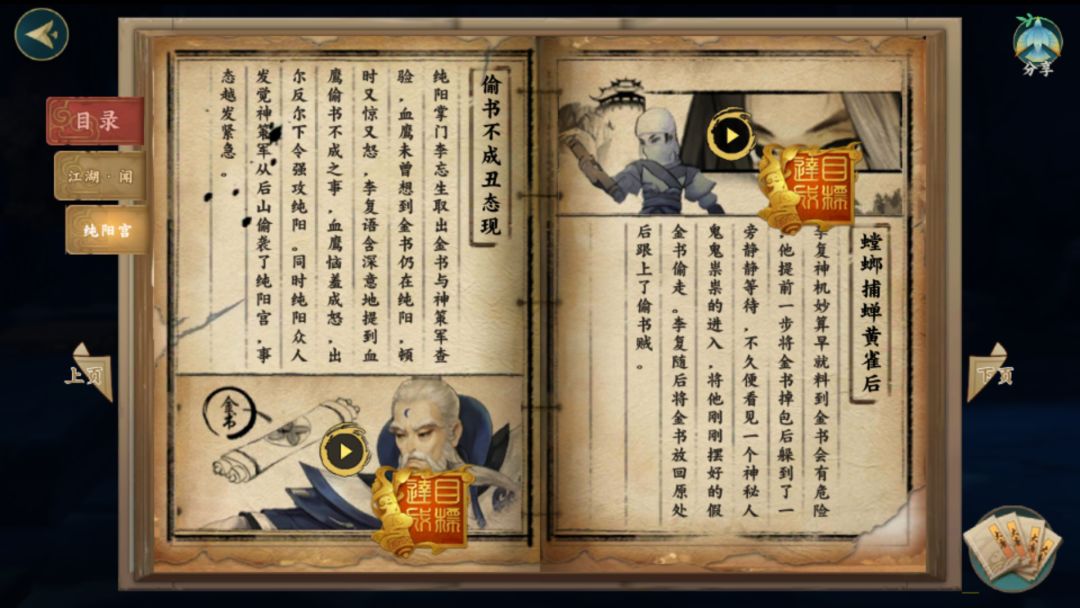 分享
目录
江湖·闻
纯阳宫
上页
下页
螳螂捕蝉黄雀后
李复神机妙算早就料到金书会有危险
，他提前一步将金书掉包后躲到了一
旁静静等待，不久便看见一个神秘人
鬼鬼祟祟的进入，将他刚刚摆好的假
金书偷走。李复随后将金书放回原处
后跟上了偷书贼。
目標達成
偷书不成丑态现
纯阳掌门李忘生取出金书与神策军查
验，血鹰未曾想到金书仍在纯阳，顿
时又惊又怒，李复语含深意地提到血
鹰偷书不成之事，血鹰恼羞成怒，出
尔反尔下令强攻纯阳。同时纯阳众人
发觉神策军从后山偷袭了纯阳宫，事
态越发紧急。
金书
目標達成